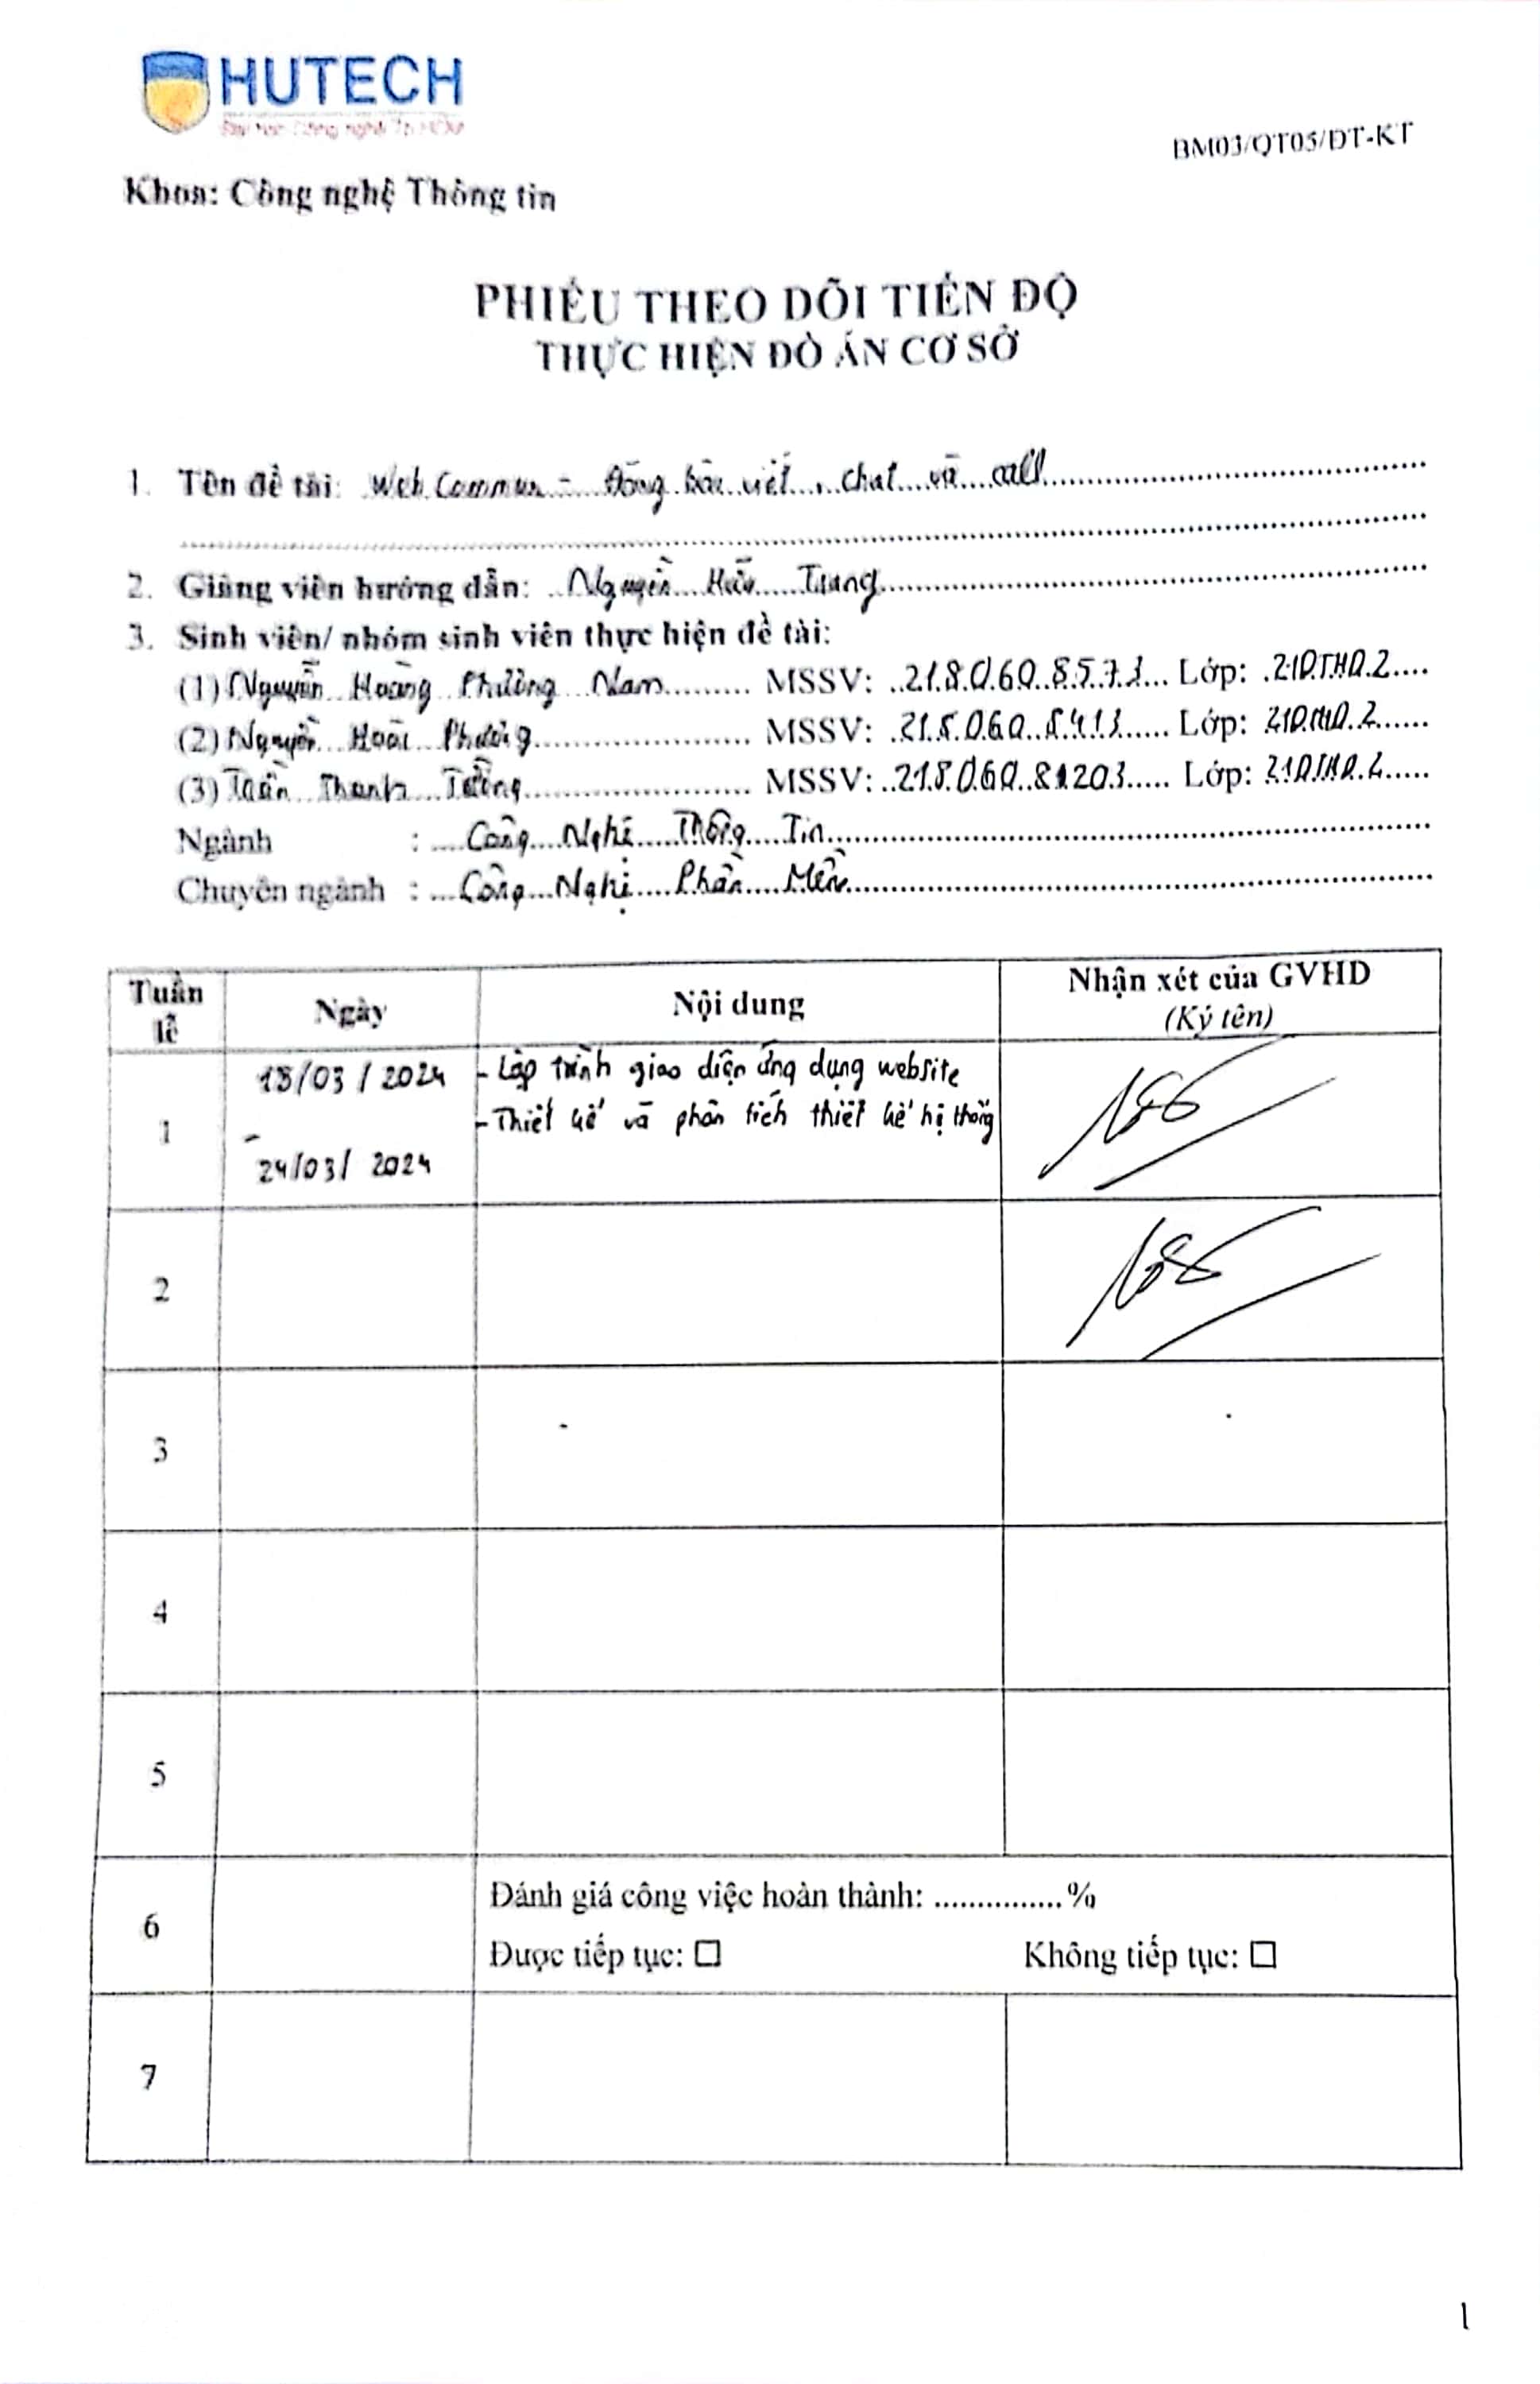 HUTECH
Đại học Công nghệ Tp.HCM
BM03/QT05/ĐT-KT
Khoa: Công nghệ Thông tin
PHIẾU THEO DÕI TIẾN ĐỘ
THỰC HIỆN ĐỒ ÁN CƠ SỞ
1. Tên đề tài: Web - Đăng bài viết, chat và call
2. Giảng viên hướng dẫn: Nguyễn Hữu Trung
3. Sinh viên/ nhóm sinh viên thực hiện đề tài:
(1) Nguyễn Hoàng Phương Nam MSSV: 2180608573 Lớp: 21DTHD2
(2) Nguyễn Hoài Phương MSSV: Lớp: 21DTHD2
(3) Trần Thanh MSSV: 21806081203 Lớp: 21DTHD2
Ngành : Công Nghệ Thông Tin
Chuyên ngành : Công Nghệ Phần Mềm
Tuần lễ Ngày Nội dung Nhận xét của GVHD
(Ký tên)
1 18/03/2024 - Lập trình giao diện ứng dụng website
- Thiết kế và phân tích thiết kế hệ thống
- 24/03/2024
2
3
4
5
6 Đánh giá công việc hoàn thành: ...............%
Được tiếp tục: ☐ Không tiếp tục: ☐
7
1